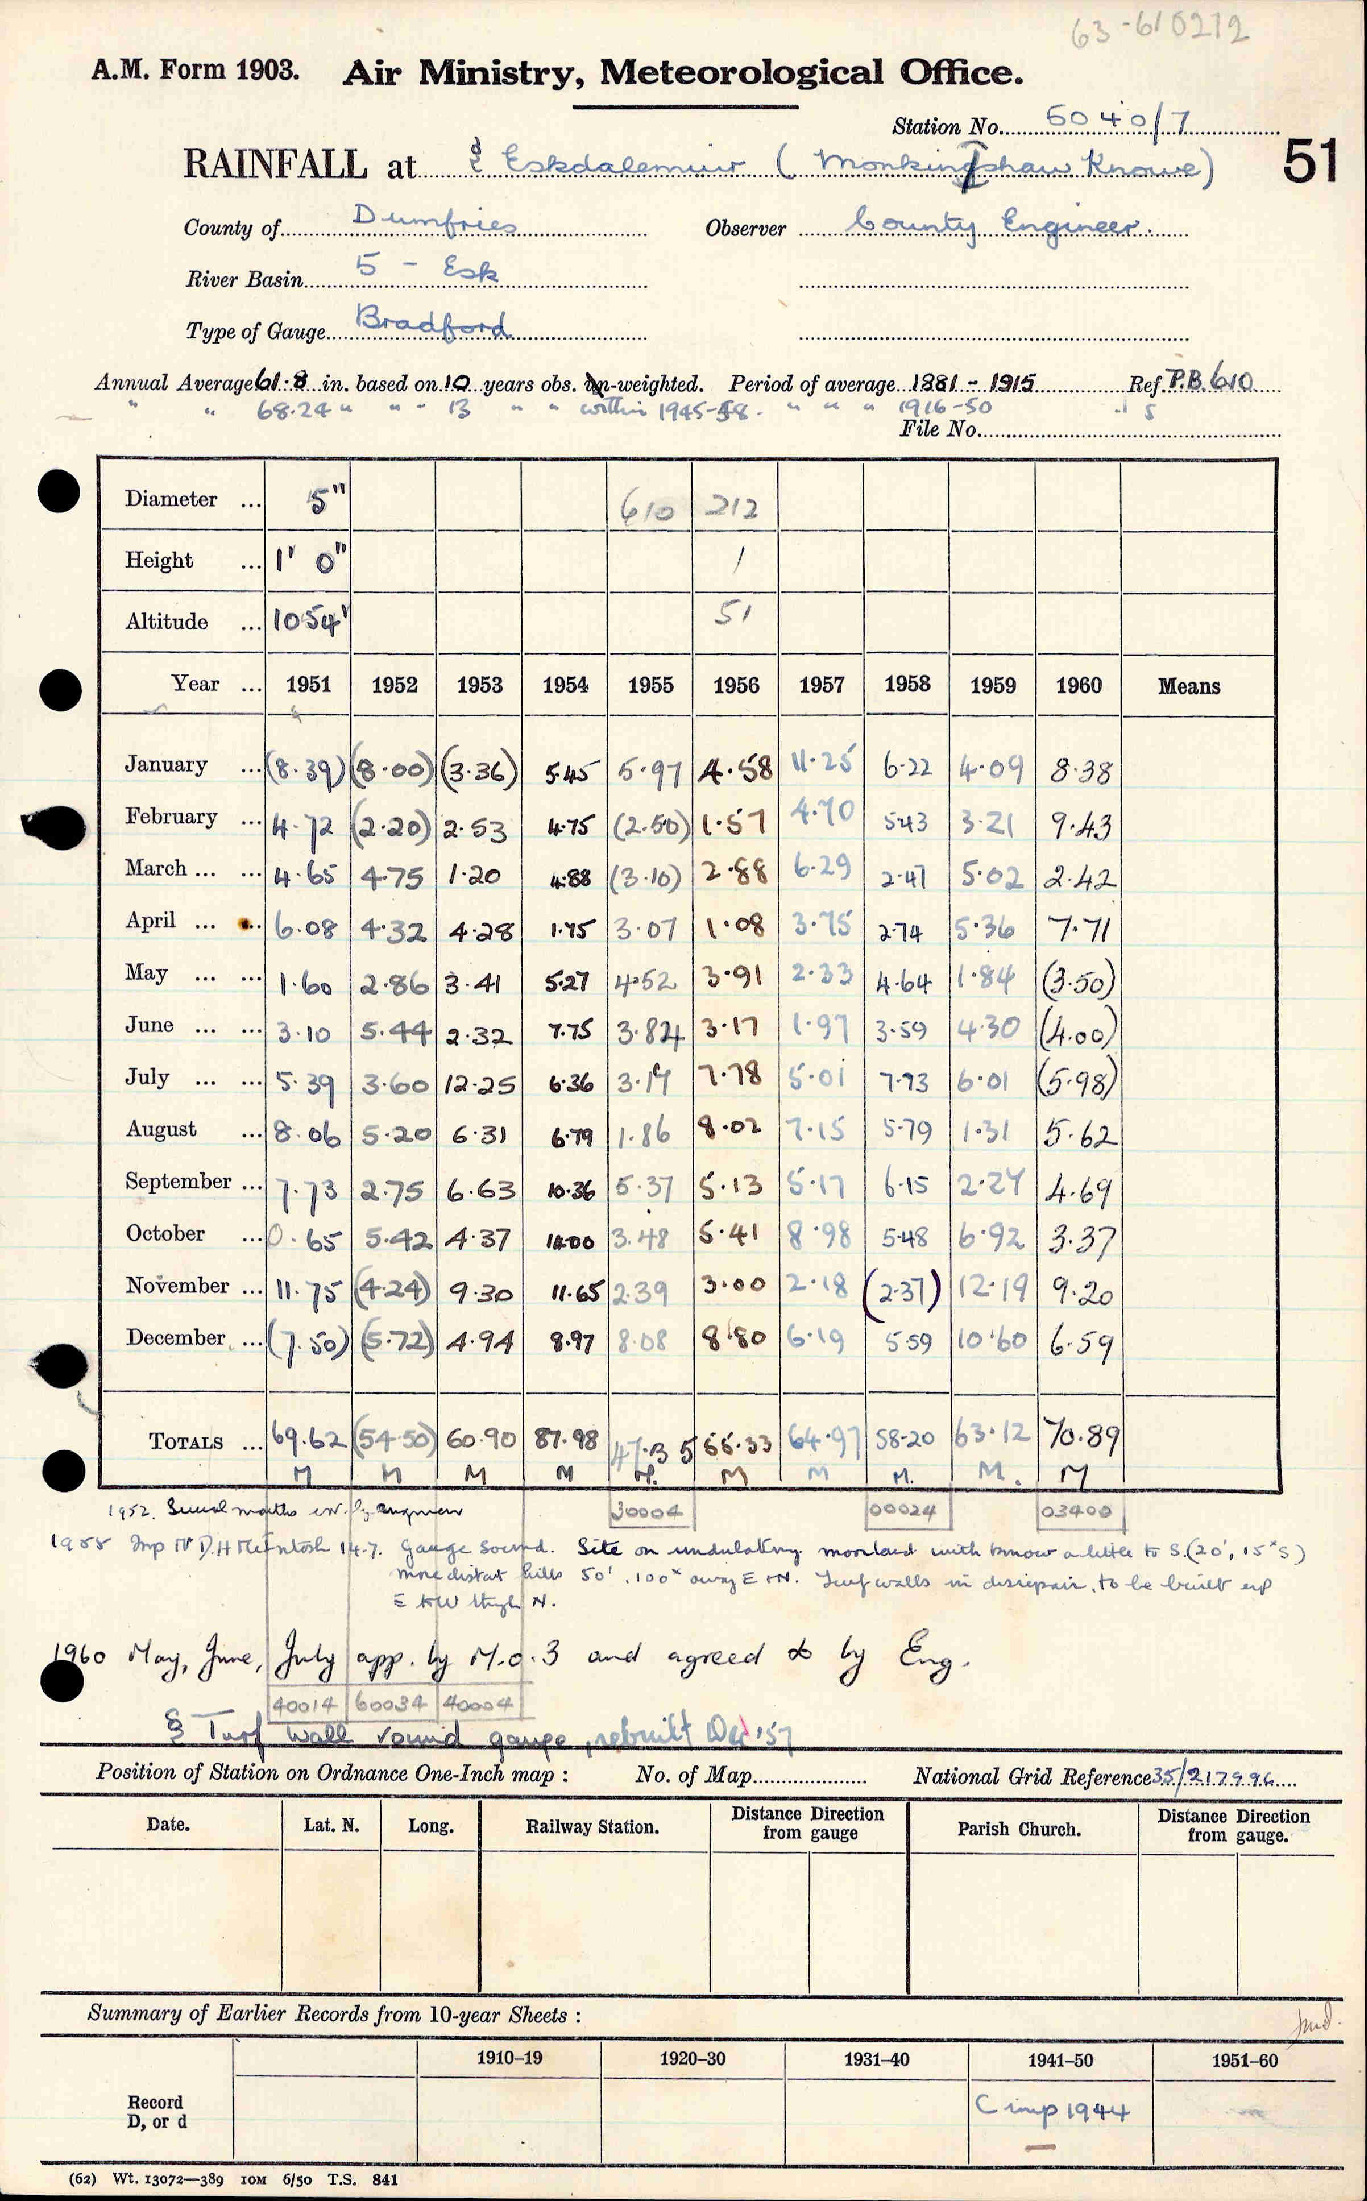 63-610212
A.M. Form 1903. Air Ministry, Meteorological Office.
Station No. 5040/7
RAINFALL at & Eskdalemuir (Monkingshaw Knowe) 51
County of Dumfries Observer County Engineer.
River Basin 5 - Esk
Type of Gauge Bradford
Annual Average 61.8 in. based on 10 years obs. un-weighted. Period of average 1881 - 1915 Ref P.B. 610
" " 68.24 " " " 13 " " within 1945-58. " " " 1916-50
File No.
Diameter ... 5" 610 212
Height ... 1' 0" 1
Altitude ... 1054' 51
Year ... 1951 1952 1953 1954 1955 1956 1957 1958 1959 1960 Means
January ... (8.39) (8.00) (3.36) 5.45 5.97 4.58 11.25 6.22 4.09 8.38
February ... 4.72 (2.20) 2.53 4.75 (2.50) 1.57 4.70 5.43 3.21 9.43
March ... ... 4.65 4.75 1.20 4.88 (3.10) 2.88 6.29 2.47 5.02 2.42
April ... ... 6.08 4.32 4.28 1.75 3.07 1.08 3.75 2.74 5.36 7.71
May ... ... 1.60 2.86 3.41 5.27 4.52 3.91 2.33 4.64 1.84 (3.50)
June ... ... 3.10 5.44 2.32 7.75 3.82 3.17 1.97 3.59 4.30 (4.00)
July ... ... 5.39 3.60 12.25 6.36 3.19 7.78 5.01 7.73 6.01 (5.98)
August ... 8.06 5.20 6.31 6.79 1.86 8.02 7.15 5.79 1.31 5.62
September ... 7.73 2.75 6.63 10.36 5.37 5.13 5.17 6.15 2.27 4.69
October ... 0.65 5.42 4.37 14.00 3.48 5.41 8.98 5.48 6.92 3.37
November ... 11.75 (4.24) 9.30 11.65 2.39 3.00 2.18 (2.37) 12.19 9.20
December ... (7.50) (5.72) 4.94 8.97 8.08 8.80 6.19 5.59 10.60 6.59
TOTALS ... 69.62 (54.50) 60.90 87.98 47.35 55.33 64.97 58.20 63.12 70.89
M M M M M. M M M. M. M
1952. Several months by Engineer 30004 00024 03400
1955 Insp Mr D.H McIntosh 14.7. Gauge Sound. Site on undulating moorland with know a little to S. (20', 15x S)
more distant hills 50', 100x away E + N. Turf walls in disrepair, to be built up
E to W through N.
1960 May, June, July app. by M.O.3 and agreed to by Eng.
40014 60034 40004
& Turf wall round gauge, rebuilt Dec '57
Position of Station on Ordnance One-Inch map : No. of Map National Grid Reference 35/217996
Date. Lat. N. Long. Railway Station. Distance from gauge Direction Parish Church. Distance Direction from gauge.
Summary of Earlier Records from 10-year Sheets :
1910–19 1920–30 1931–40 1941–50 1951–60
Record
D, or d
C insp 1944
(62) Wt. 13072—389 10M 6/50 T.S. 841